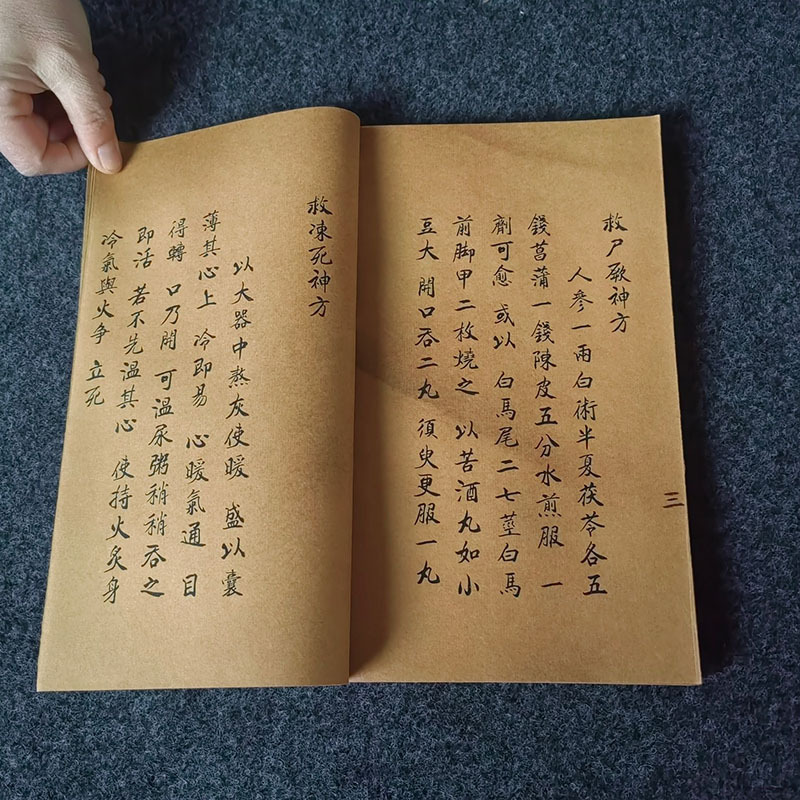 救尸厥神方
人參一兩白術半夏茯苓各五
錢菖蒲一錢陳皮五分水煎服 一
劑可愈 或以 白馬尾二七莖白馬
前脚甲二枚燒之 以苦酒丸如小
豆大 開口吞二丸 須臾更服一丸
三
救凍死神方
以大器中熬灰使暖 盛以囊
薄其心上 冷即易 心暖氣通 目
得轉 口乃開 可溫尿粥稍稍吞之
即活 若不先溫其心 使持火炙身
冷氣與火爭 立死